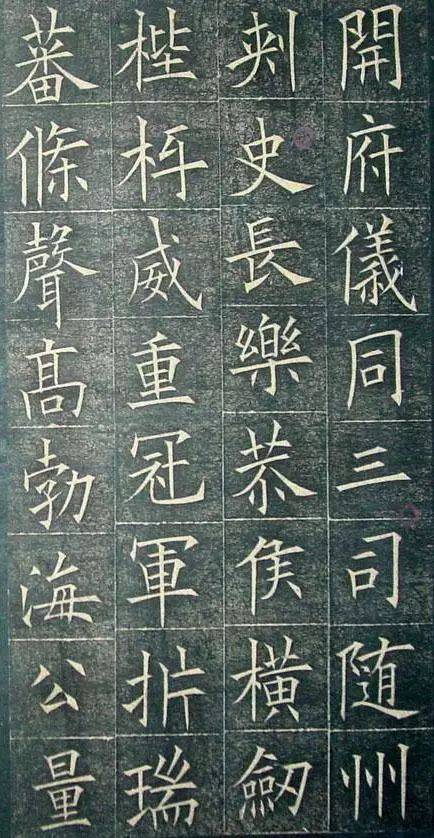 開府儀同三司随州
刾史長樂恭侯橫劒
梐枑威重冠軍扸瑞
蕃條聲髙勃海公量